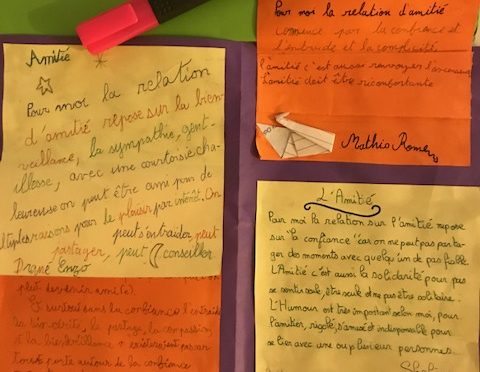 Amitié
Pour moi la relation
d'amitié repose sur la bien-
veillance, la sympathie, gent-
illesse, avec une courtoisie cha-
leureuse on peut être ami pour de
multiples raisons pour le plaisir par intérêt. On
peut s'entraider, peut
partager, peut conseiller
Enzo
peut devenir ami(e).
Et surtout sans la confiance l'entraide
la sincérité, le partage, la compassion,
et la bienveillance
tout porte autour de la confiance
Pour moi la relation d'amitié
commence par la confiance et
l'entraide et la complicité
l'amitié c'est aussi renvoyer l'ascenseur
L'amitié doit être réconfortante
Mathis Romero
L'Amitié
Pour moi la relation sur l'amitié repose
sur la confiance car on ne peut pas parta-
ger des moments avec quelqu'un de pas fiable.
L'Amitié c'est aussi la solidarité pour pas
se sentir seule, être seule et ne pas être solitaire.
L'Humour est très important selon moi, pour
l'amitier, rigolé, s'amusé et indispensable pour
se lier avec une ou plusieur personnes.